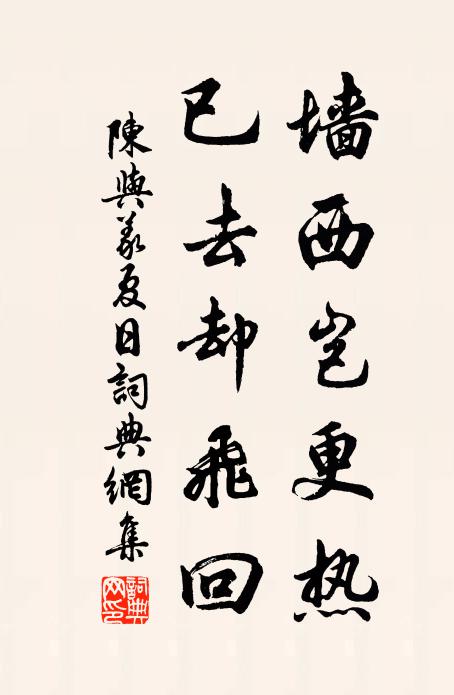 墙西岂更热
已去却飛回
陳與義夏日詞典網集
詞典网印